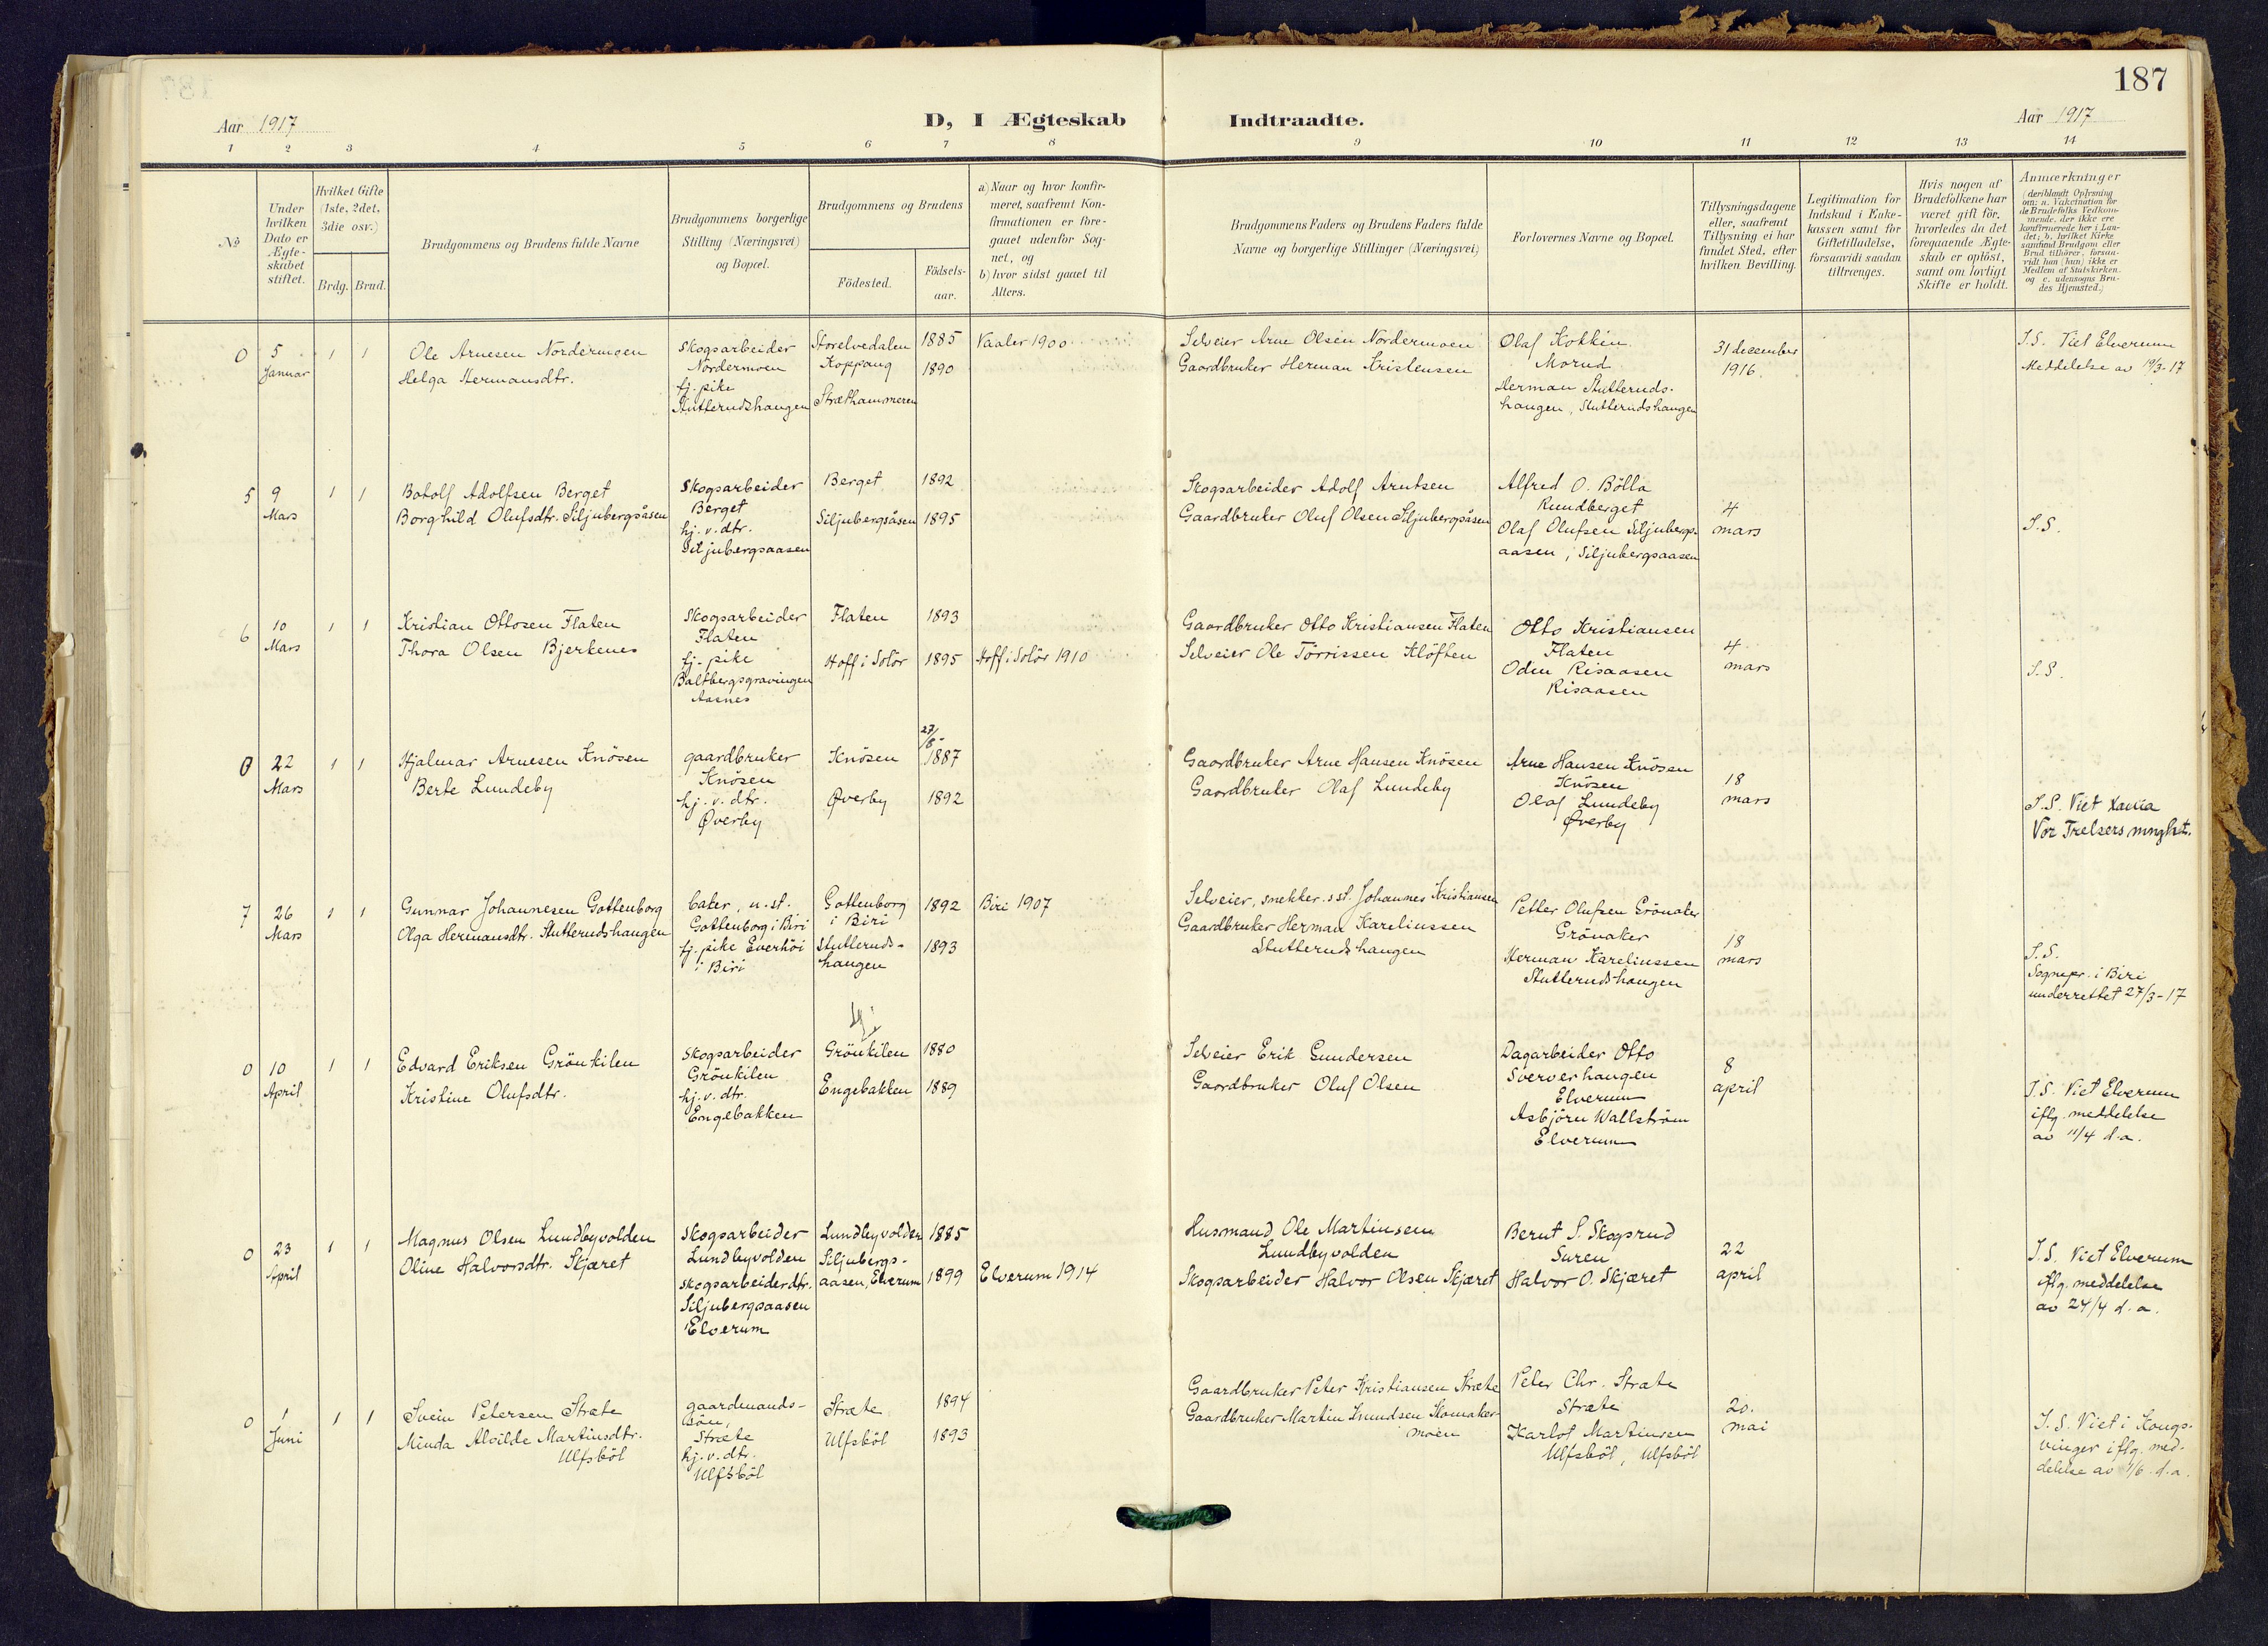 187
Aar 1917
D, I Ægteskab Indtraadte.
Aar 1917
1 2 3 4 5 6 7 8 9 10 11 12 13 14
No
Under hvilken Dato er Ægteskabet stiftet.
Hvilket Gifte (1ste, 2det, 3die osv.)
Brdg. Brud.
Brudgommens og Brudens fulde Navne
Brudgommens borgerlige Stilling (Næringsvei) og Bopæl.
Brudgommens og Brudens
Födested.
Födselsaar.
a) Naar og hvor konfirmeret, saafremt Konfirmationen er foregaaet udenfor Sognet, og
b) hvor sidst gaaet til Alters.
Brudgommens Faders og Brudens Faders fulde Navne og borgerlige Stillinger (Næringsvei)
Forlovernes Navne og Bopæl.
Tillysningsdagene eller, saafremt Tillysning ei har fundet Sted, efter hvilken Bevilling.
Legitimation for Indskud i Enkekassen samt for Giftetilladelse, forsaavidt saadan tiltrænges.
Hvis nogen af Brudefolkene har været gift før, hvorledes da det foregaaende Ægteskab er opløst, samt om lovligt Skifte er holdt.
Anmærkninger
(deriblandt Oplysning om: a. Vakcination for de Brudefolks Vedkommende, der ikke ere konfirmerede her i Landet; b. hvilket Kirkesamfund Brudgom eller Brud tilhører, forsaavidt han (hun) ikke er Medlem af Statskirken. og c. udensogns Brudes Hjemsted.)
0 5 Januar 1 1
Ole Arnesen Nordermoen
Helga Hermansdtr.
Skogsarbeider
Nordermoen
tj. pike
Stutterudshaugen
Storelvedalen
Koppang
Strækhammeren
1885
1890
Vaaler 1900
Selveier Arne Olsen Nordermoen
Gaardbruker Herman Kristensen
Olaf Kokkin
Morud
Herman Stutteruds-
haugen, Stutterudshaugen
31 december
1916
I.S. Viet Elverum
Meddelelse av 19/3-17
5 9 Mars 1 1
Botolf Adolfsen Berget
Borghild Olufsdtr. Siljubergsåsen
Skogsarbeider
Berget
hj. v. dtr.
Siljubergsaasen
Berget
Siljubergsåsen
1892
1895
Skogsarbeider Adolf Arntsen
Gaardbruker Oluf Olsen Siljubergsåsen
Alfred O. Bölla
Rundberget
Olaf Olufsen Siljubergs-
aasen, Siljubergsaasen
4
mars
I.S.
6 10 Mars 1 1
Kristian Ottosen Flaten
Thora Olsen Bjerkenes
Skogsarbeider
Flaten
tj. pike
Baltbergsgravingen
Aasnes
Flaten
Hoff i Solör
1893
1895
Hoff i Solör 1910
Gaardbruker Otto Kristiansen Flaten
Selveier Ole Törrissen Klöften
Otto Kristiansen
Flaten
Oden Risaasen
Risaasen
4
mars
I.S.
0 22 Mars 1 1
Hjalmar Arnesen Knösen
Berte Lundeby
gaardbruker
Knösen
hj. v. dtr.
Øverby
Knösen
Øverby
27/8-
1887
1892
Gaardbruker Arne Hansen Knösen
Gaardbruker Olaf Lundeby
Arne Hansen Knösen
Knösen
Olaf Lundeby
Øverby
18
mars
I.S. Viet
Vor Frelsers
7 26 Mars 1 1
Gunnar Johannesen Gottenborg
Olga Hermansdtr. Stutterudshaugen
baker, u. st.
Gottenborg i Biri
tj. pike Everhöi
i Biri
Gottenborg
i Biri
Stutteruds-
haugen
1892
1893
Biri 1907
Selveier, snekker s st. Johannes Kristiansen
Gaardbruker Herman Kareliussen
Stutterudshaugen
Petter Olufsen Grönaker
Grönaker
Herman Kareliussen
Stutterudshaugen
18
mars
I.S.
Sognepr. i Biri
underrettet 27/3-17
0 10 April 1 1
Edvard Eriksen Grönkilen
Kristine Olufsdtr.
Skogsarbeider
Grönkilen
hj. v. dtr.
Engebakken
Grönkilen
Engebakken
1880
1889
Selveier Erik Gundersen
Gaardbruker Oluf Olsen
Dagarbeider Otto
Sververhaugen
Elverum
Asbjörn Wallström
Elverum
8
april
I.S. Viet Elverum
iflg. meddelelse
av 11/4 d.a.
0 23 April 1 1
Magnus Olsen Lundbyvolden
Oline Halvorsdtr. Skjæret
Skogsarbeider
Lundbyvolden
skogsarbeiderdtr.
Siljubergsaasen
Elverum
Lundbyvolden
Siljubergs-
aasen, Elverum
1885
1899
Elverum 1914
Husmand Ole Martinsen
Lundbyvolden
Skogsarbeider Halvor Olsen Skjæret
Bernt S. Skogsrud
Suren
Halvor O. Skjæret
22
april
I.S. Viet Elverum
iflg. meddelelse
av 24/4 d.a.
0 1 Juni 1 1
Svein Petersen Stræte
Minda Alvilde Martinsdtr.
Ulfsböl
gaardmands-
sön,
Stræte
hj. v. dtr.
Ulfsböl
Stræte
Ulfsböl
1894
1893
Gaardbruker Peter Kristiansen Stræte
Gaardbruker Martin Knudsen Komaker-
moen
Peter Chr. Stræte
Stræte
Karlot Martinsen
Ulfsböl, Ulfsböl
20.
mai
I.S. Viet i Kongs-
vinger iflg. med-
delelse av 1/6 d.a.